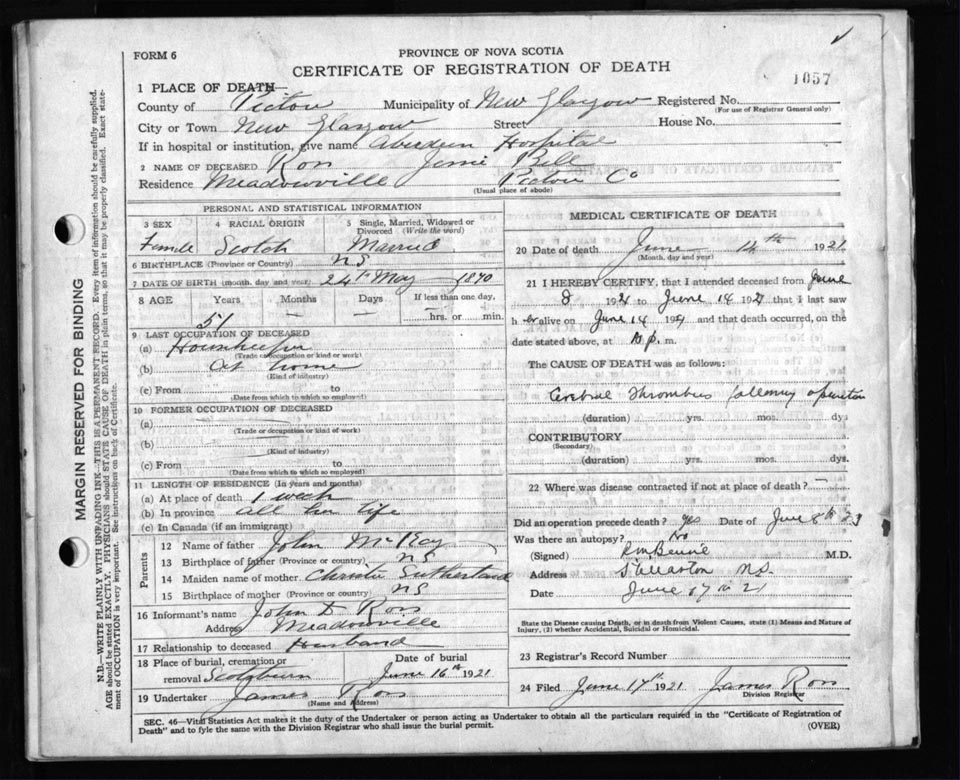 FORM 6
PROVINCE OF NOVA SCOTIA
CERTIFICATE OF REGISTRATION OF DEATH
1057
1 PLACE OF DEATH—
County of Pictou Municipality of New Glasgow Registered No.
(For use of Registrar General only)
City or Town New Glasgow Street House No.
If in hospital or institution, give name Aberdeen Hospital
2 NAME OF DECEASED Ross Jessie Bell
Residence Meadowville Pictou Co
(Usual place of abode)
PERSONAL AND STATISTICAL INFORMATION
3 SEX 4 RACIAL ORIGIN 5 Single, Married, Widowed or Divorced (Write the word)
Female Scotch Married
6 BIRTHPLACE (Province or Country) NS
7 DATE OF BIRTH (month, day and year) 24th May 1870
8 AGE Years Months Days If less than one day,
51 — — hrs. or min.
9 LAST OCCUPATION OF DECEASED
(a) Housekeeper
(Trade or occupation or kind or work)
(b) at home
(Kind of industry)
(c) From to
(Date from which to which so employed)
10 FORMER OCCUPATION OF DECEASED
(a)
(Trade or occupation or kind of work)
(b)
(Kind of industry)
(c) From to
(Date from which to which so employed)
11 LENGTH OF RESIDENCE (In years and months)
(a) At place of death 1 week
(b) In province all her life
(c) In Canada (if an immigrant)
Parents
12 Name of father John McKay
13 Birthplace of father (Province or country) NS
14 Maiden name of mother Christie Sutherland
15 Birthplace of mother (Province or country) NS
16 Informant's name John D Ross
Address Meadowville
17 Relationship to deceased Husband
18 Place of burial, cremation or removal Scotsburn Date of burial June 16th 1921
19 Undertaker James Ross
(Name and Address)
MEDICAL CERTIFICATE OF DEATH
20 Date of death June 14th 1921
(Month, day and year)
21 I HEREBY CERTIFY, that I attended deceased from June
8 1921 to June 14 1921 that I last saw
h er alive on June 14 1921 and that death occurred, on the
date stated above, at p. m.
The CAUSE OF DEATH was as follows:
Cerebral Thrombus following operation
(duration) yrs. mos. dys
CONTRIBUTORY
(Secondary)
(duration) yrs. mos. dys.
22 Where was disease contracted if not at place of death? —
Did an operation precede death? yes Date of June 8th
Was there an autopsy? No
(Signed) M.D.
Address Stellarton N.S.
Date June 17th 21
State the Disease causing Death, or in death from Violent Causes, state (1) Means and Nature of
Injury, (2) whether Accidental, Suicidal or Homicidal.
23 Registrar's Record Number
24 Filed June 17th 1921 James Ross
Division Registrar
SEC. 46—Vital Statistics Act makes it the duty of the Undertaker or person acting as Undertaker to obtain all the particulars required in the "Certificate of Registration of
Death" and to fyle the same with the Division Registrar who shall issue the burial permit. (OVER)
MARGIN RESERVED FOR BINDING
N.B.—WRITE PLAINLY WITH UNFADING INK—THIS IS A PERMANENT RECORD. Every item of information should be carefully supplied.
AGE should be stated EXACTLY. PHYSICIANS should STATE CAUSE OF DEATH in plain terms, so that it may be properly classified. Exact state-
ment of OCCUPATION is very important. See instructions on back of Certificate.